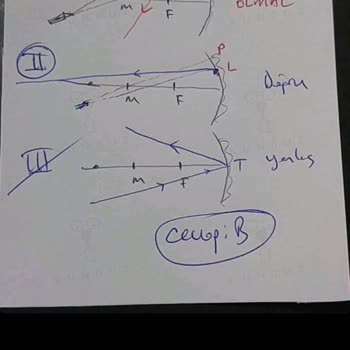 M F OLMAZ
II
P
L
M F Doğru
III M F T yanlış
Cevap: B